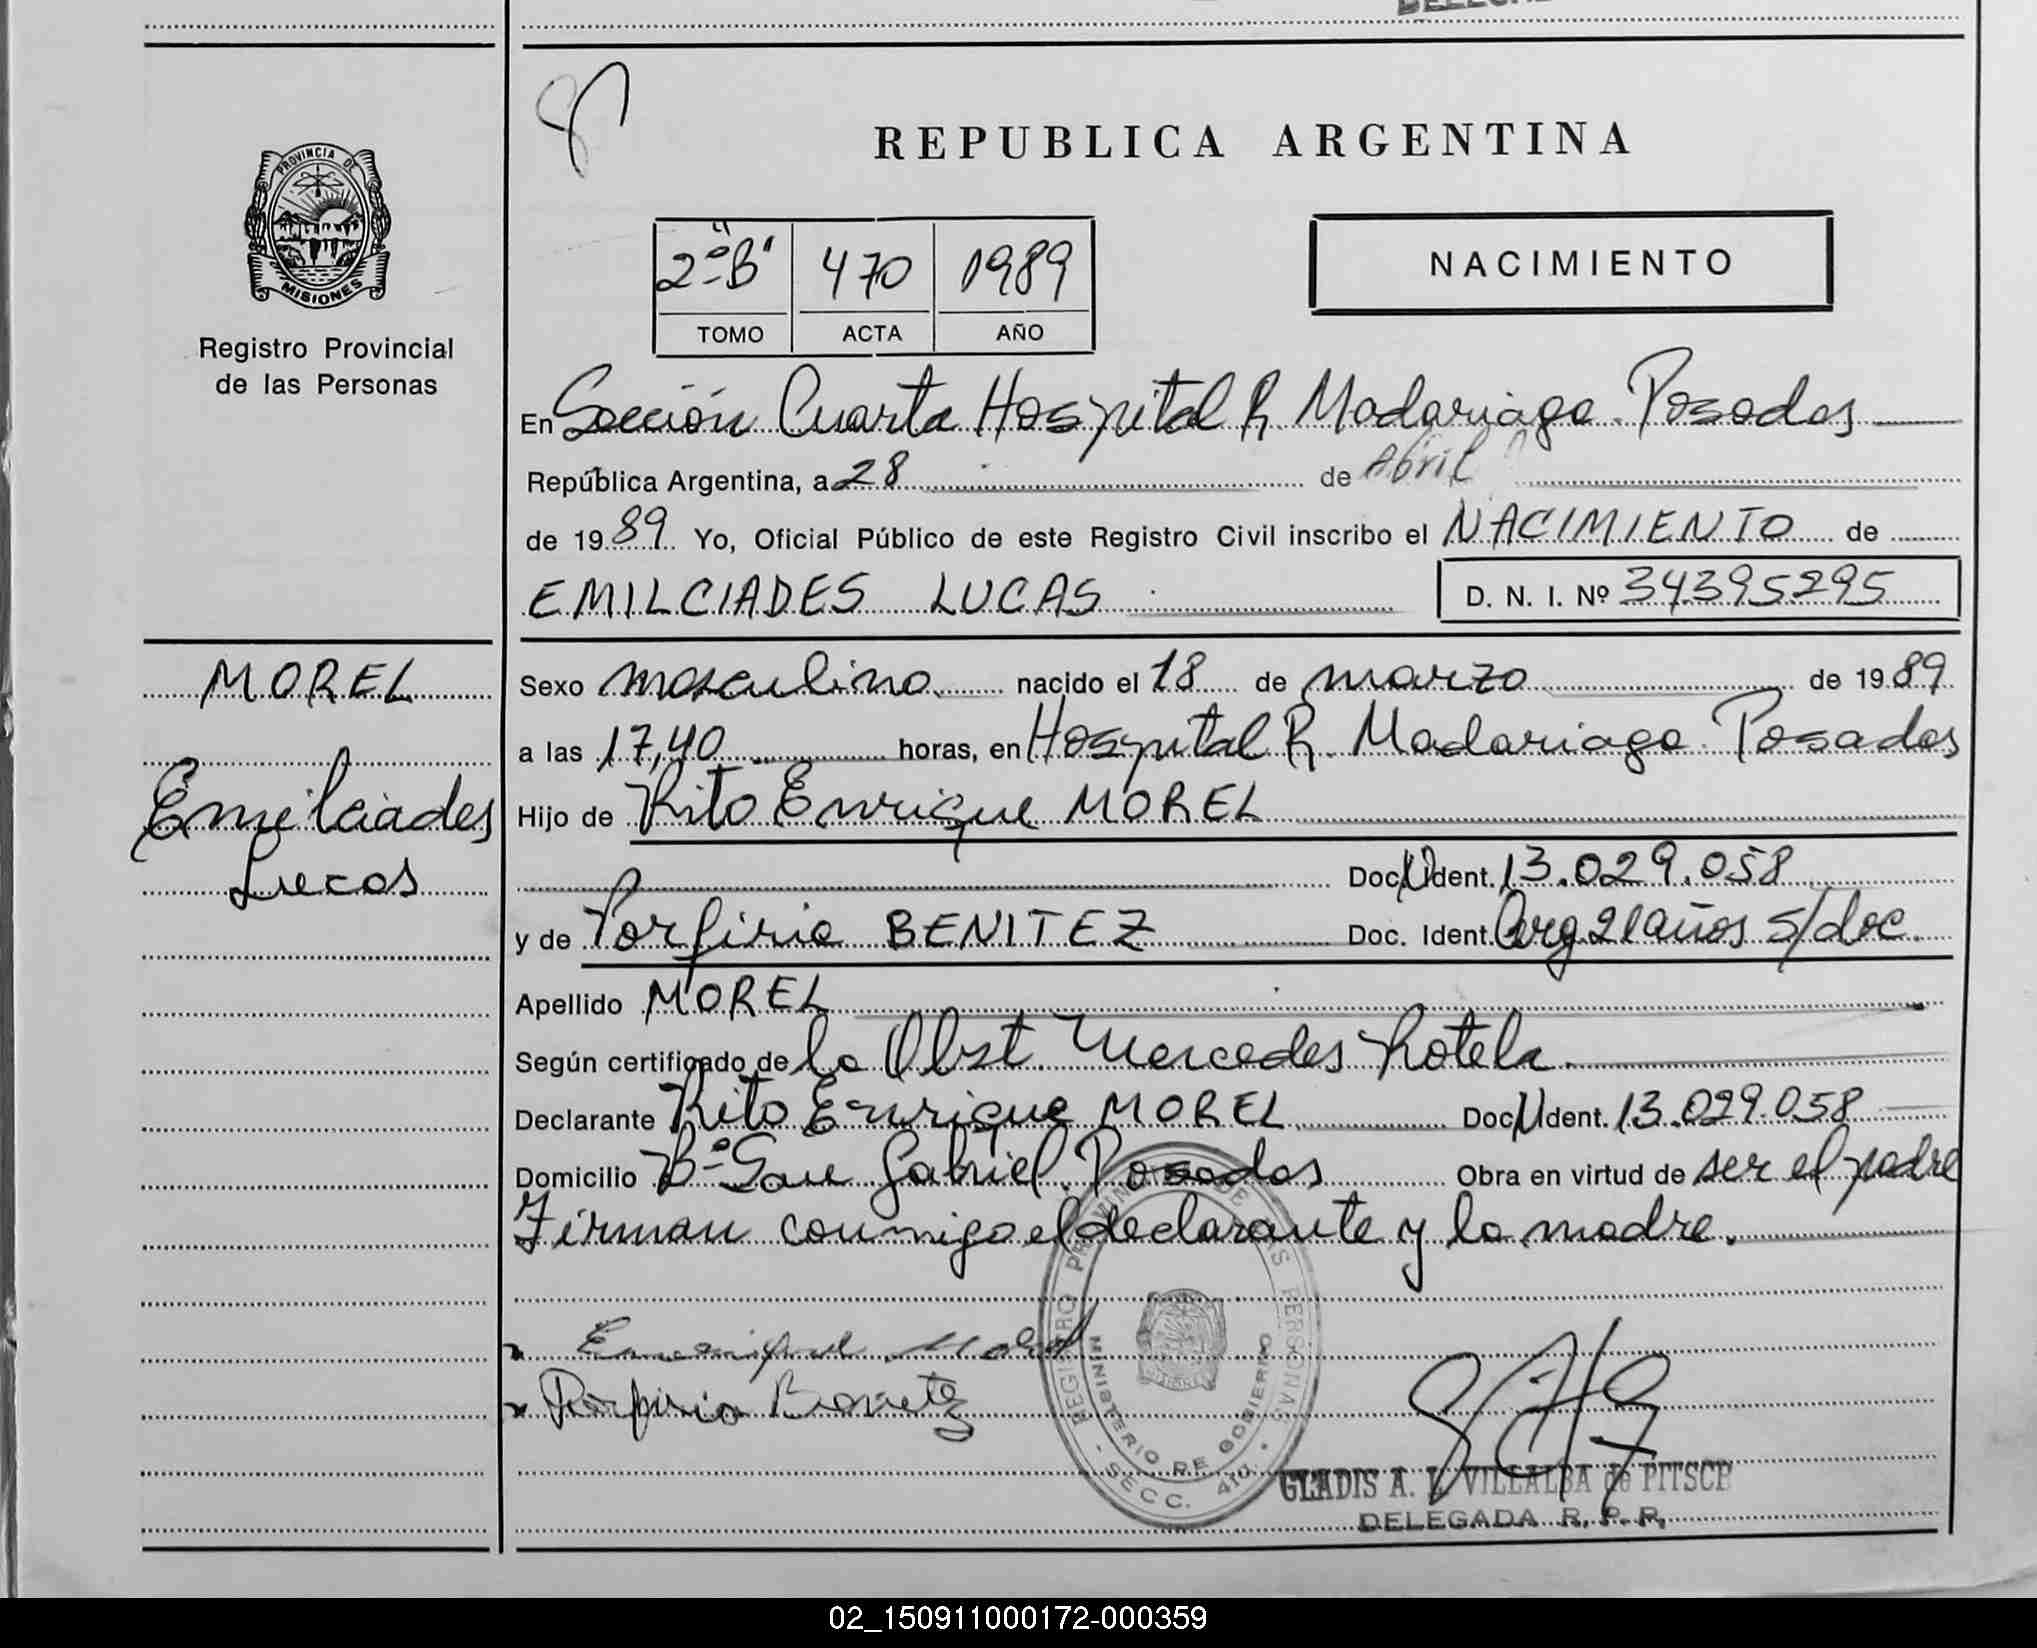 PROVINCIA DE
MISIONES
Registro Provincial
de las Personas
MOREL
Emilciades
Lucas
REPUBLICA ARGENTINA
2º "B" 470 1989
TOMO ACTA AÑO
NACIMIENTO
En Sección Cuarta Hospital R. Madariaga. Posadas
República Argentina, a 28 de Abril
de 1989 Yo, Oficial Público de este Registro Civil inscribo el NACIMIENTO de
EMILCIADES LUCAS D. N. I. Nº 34395295
Sexo masculino nacido el 18 de marzo de 1989
a las 17,40 horas, en Hospital R. Madariaga. Posadas
Hijo de Rito Enrique MOREL
Doc. Ident. 13.029.058
y de Porfiria BENITEZ Doc. Ident. Arg 21 años s/doc.
Apellido MOREL
Según certificado de la Obst. Mercedes Rotela.
Declarante Rito Enrique MOREL Doc. Ident. 13.029.058
Domicilio Bº San Gabriel. Posadas Obra en virtud de ser el padre
Firman conmigo el declarante y la madre.
Porfiria Benitez
REGISTRO PROVINCIAL DE LAS PERSONAS
MINISTERIO DE GOBIERNO
SECC. 4TA.
GLADIS A. L. VILLALBA de PITSCH
DELEGADA R. P. P.
02_150911000172-000359